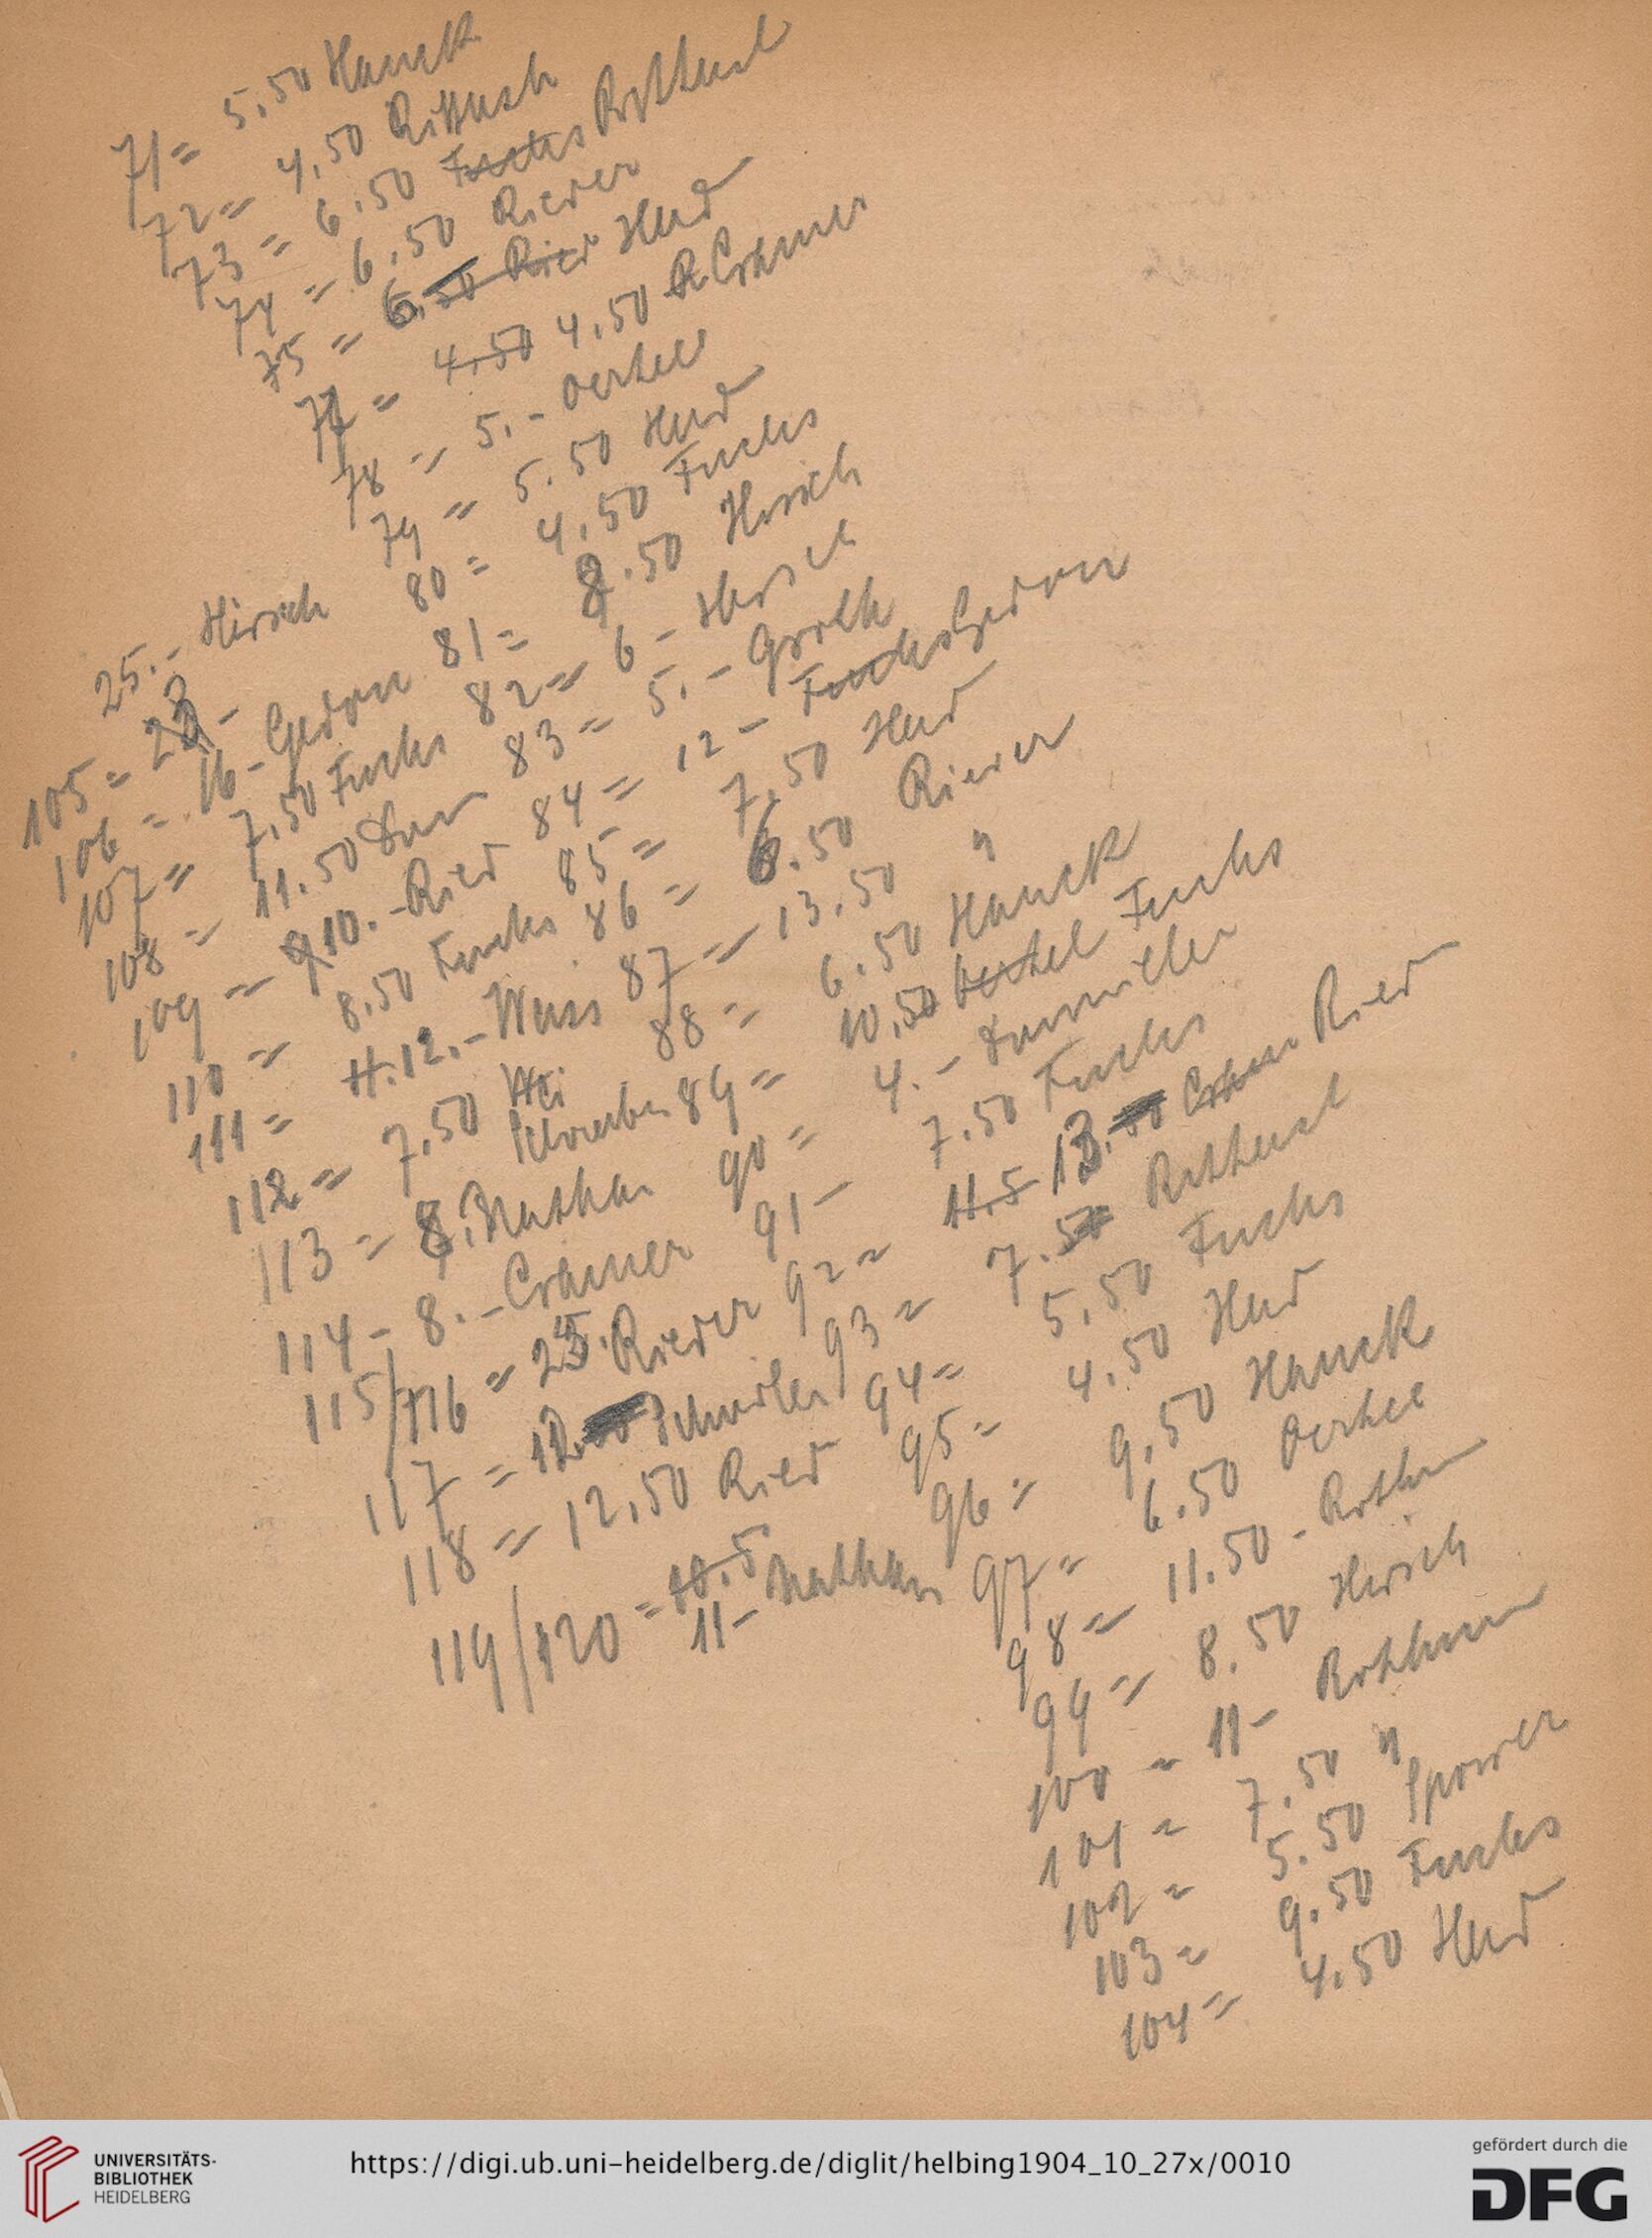 71 = 5.50 Hauck
72 = 4.50
73 = 6.50 Fuchs
74 = 6.50 Riever
75 = 6.50 Hud
77 = 4.50 4.50 R Cramer
78 = 5.- Oertel
79 = 5.50 Hud
80 = 4.50 Fuchs
81 = 8.50 Hirsch
82 = 6- Hirsch
83 = 5.- Groth
84 = 12- Fuchs Gedon
85 = 7.50 Hud
86 = 6.50 Riever
87 = 13.50 "
88 = 6.50 Hauck
89 = 10.50 Oertel Fuchs
90 = 4.-
91 - 7.50 Fuchs
92 = 11.5 13. Cram Ried
93 = 7.50
94 = 5.50 Fuchs
95 = 4.50 Hud
96 = 9.50 Hauck
97 = 6.50 Oertel
98 = 11.50 - Rothm
99 = 8.50 Hirsch
100 = 11-
101 = 7.50 "
102 = 5.50
103 = 9.50 Fuchs
104 = 4.50 Hud
25.- Hirsch
105 =
106 = 16- Gedon
107 = 7.50 Fuchs
108 = 11.50
109 = 10.- Ried
110 = 8.50 Fuchs
111 = 11. 12.- Weiss
112 = 7.50 Wei
Schreiber
113 = 8. Nathan
114 - 8.- Cramer
115/116 = 25. Riever
117 = 12.
118 = 12.50 Ried
119/120 = 10.5 Nathan
11-
UNIVERSITÄTS-
BIBLIOTHEK
HEIDELBERG
https://digi.ub.uni-heidelberg.de/diglit/helbing1904_10_27x/0010
gefördert durch die
DFG